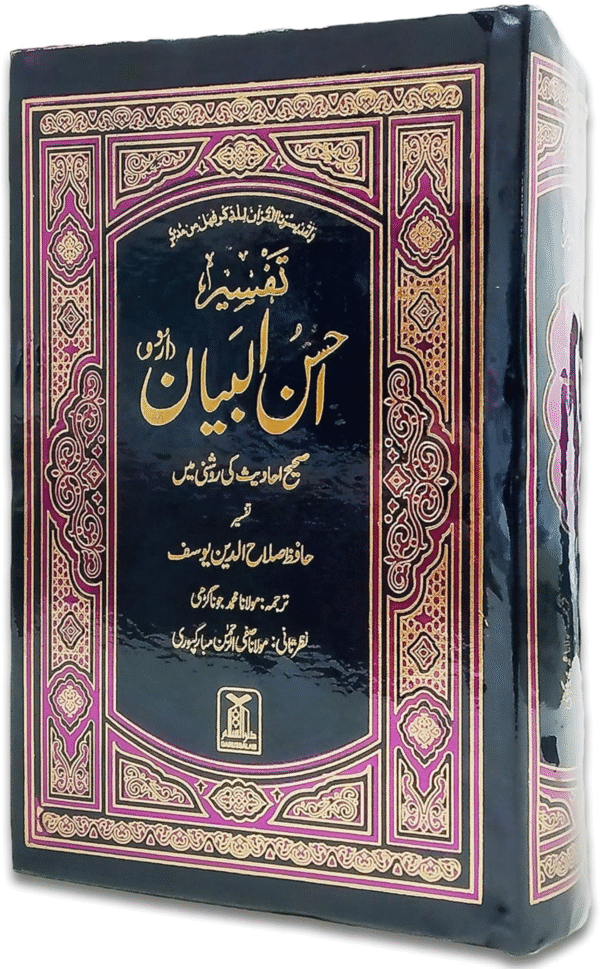 ولقد يسرنا القرآن للذكر فهل من مدكر
تفسیر
احسن البیان (اردو)
صحیح احادیث کی روشنی میں
تفسیر
حافظ صلاح الدین یوسف
ترجمہ: مولانا محمد جوناگڑھی
نظرثانی: مولانا صفی الرحمٰن مبارکپوری
دارالسلام
DARUSSALAM